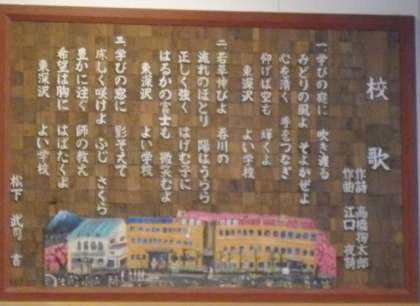 校歌
作詩 高橋掬太郎
作曲 江口夜詩
一 学びの庭に 吹き渡る
みどりの風よ そよかぜよ
心を清く 手をつなぎ
仰げば空も 輝くよ
東深沢 よい学校
二 若草伸びよ 呑川の
流れのほとり 陽はうらら
正しく強く はげむ子に
はるかの富士も 微笑むよ
東深沢 よい学校
三 学びの窓に 影そえて
床しく咲けよ ふじ さくら
豊かに注ぐ 師の教え
希望は胸に はばたくよ
東深沢 よい学校
松下 武司 書